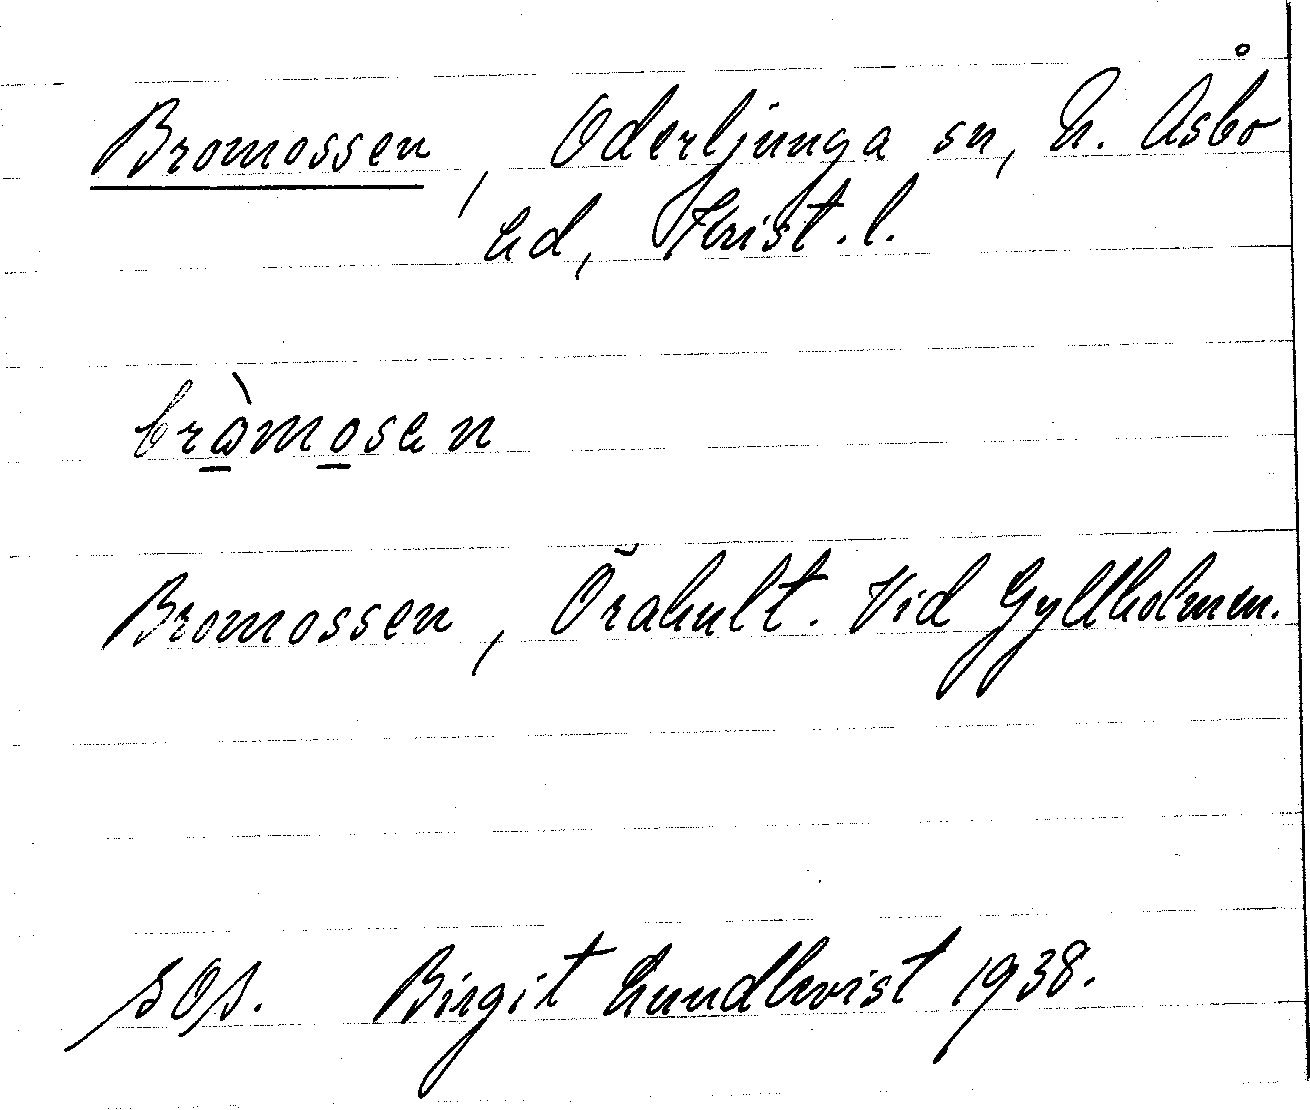 Bromossen, Oderljunga sn, N. Åsbo
hd, Krist. l.
bròmosen
Bromossen, Örahult. Vid Gyllholmen.
SOA. Birgit Lundkvist 1938.